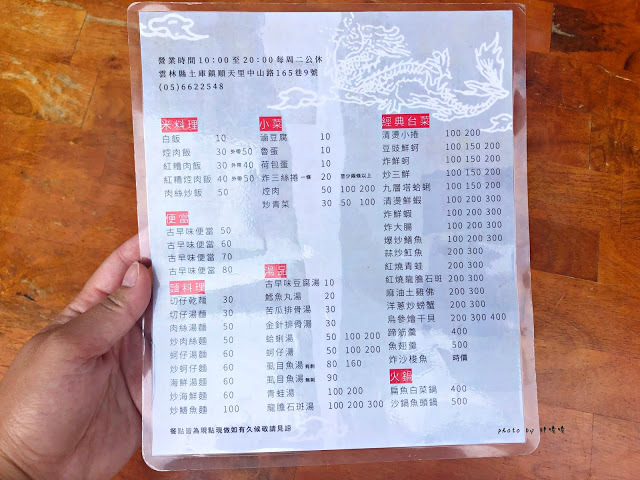 營業時間10:00至20:00每周二公休
雲林縣土庫鎮順天里中山路165巷9號
(05)6622548
米料理
白飯 10
焢肉飯 30 外帶50
紅糟肉飯 30 外帶40
紅糟焢肉飯 40 外帶50
肉絲炒飯 50
便當
古早味便當 50
古早味便當 60
古早味便當 70
古早味便當 80
麵料理
切仔乾麵 30
切仔湯麵 30
肉絲湯麵 50
炒肉絲麵 50
蚵仔湯麵 60
炒蚵仔麵 60
海鮮湯麵 60
炒海鮮麵 60
炒鱔魚麵 100
小菜
滷豆腐 10
魯蛋 10
荷包蛋 10
炸三絲捲一條 20 至少兩條以上
焢肉 50 100 200
炒青菜 30 50 100
湯品
古早味豆腐湯 10
鱈魚丸湯 20
苦瓜排骨湯 30
金針排骨湯 30
蛤蜊湯 50 100 200
蚵仔湯 50 100 200
虱目魚湯有刺 80 160
虱目魚湯無刺 90
青蛙湯 100 200
龍膽石斑湯 100 200 300
經典台菜
清燙小捲 100 200
豆豉鮮蚵 100 150 200
炸鮮蚵 100 150 200
炒三鮮 100 150 200
九層塔蛤蜊 100 150 200
清燙鮮蝦 100 200 300
炸鮮蝦 100 200 300
炸大腸 100 200 300
爆炒鱔魚 100 200 300
蒜炒魟魚 200 300
紅燒青蛙 200 300
紅燒龍膽石斑 200 300
麻油土雞佛 200 300
洋蔥炒螃蟹 200 300
烏參燴干貝 200 300 400
蹄筋羹 400
魚翅羹 500
炸沙梭魚 時價
火鍋
扁魚白菜鍋 400
沙鍋魚頭鍋 500
餐點皆為現點現做如有久候敬請見諒
photo by